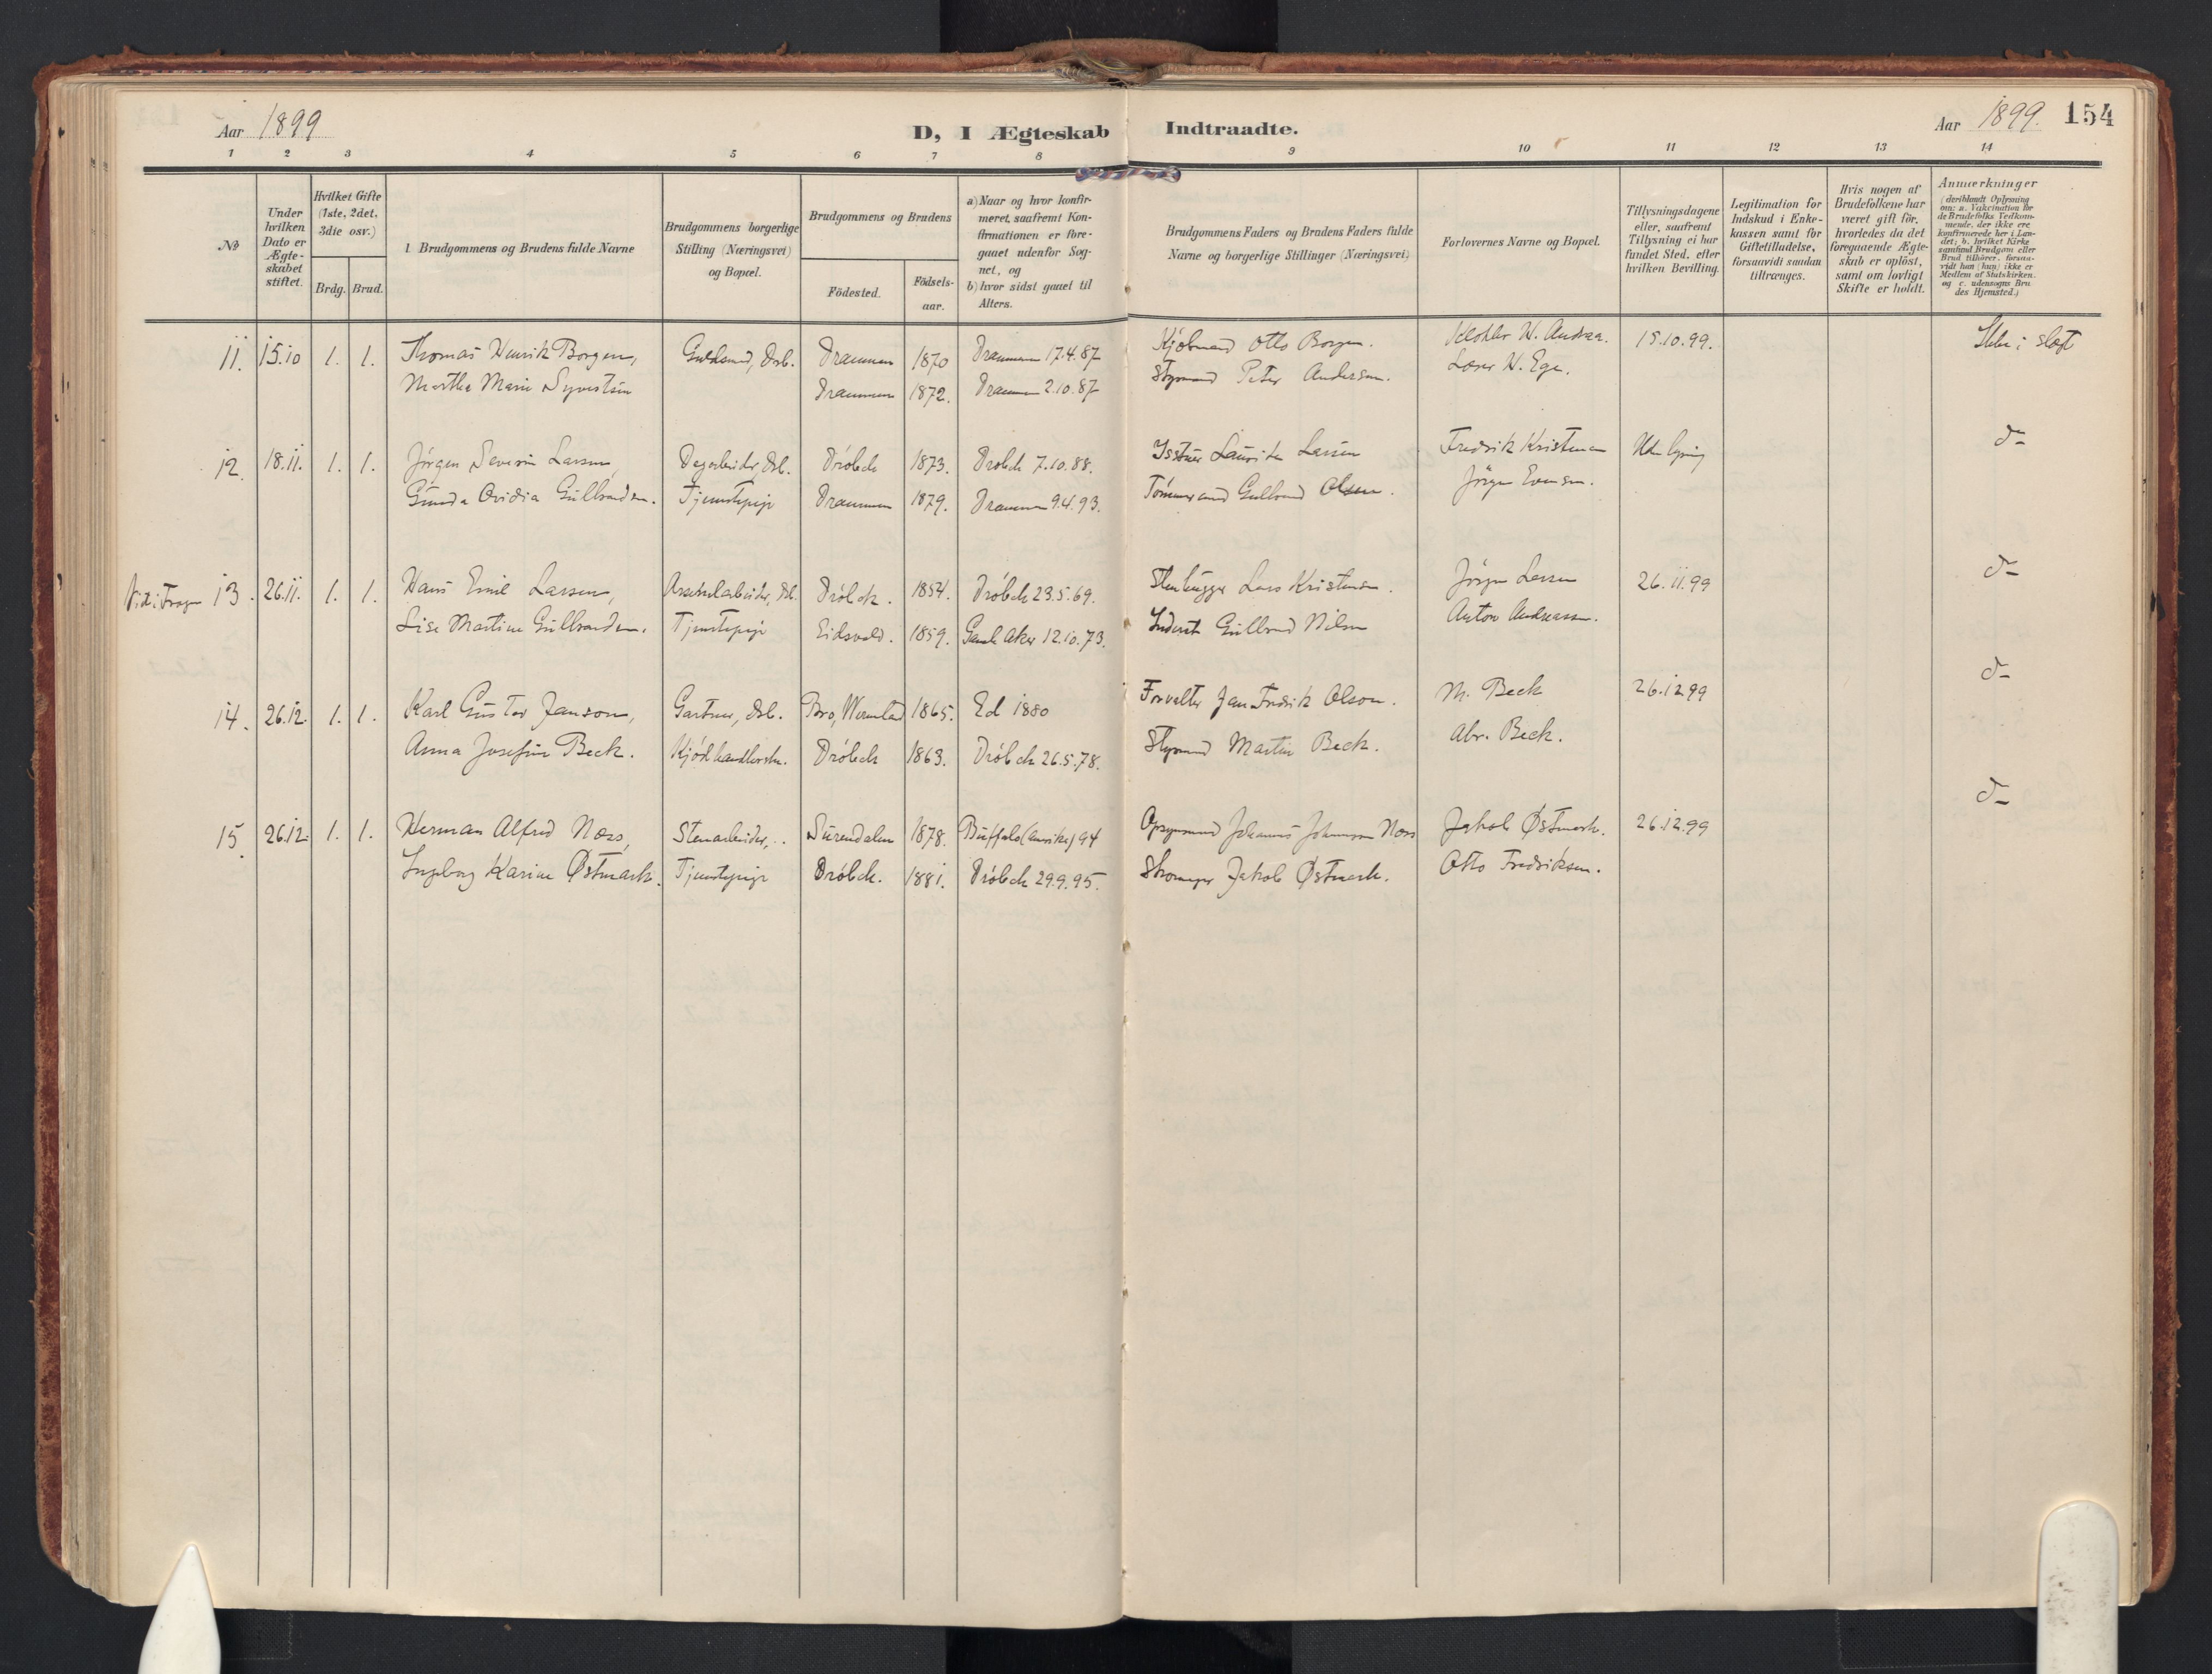 Aar 1899
D, I Ægteskab Indtraadte.
Aar 1899. 154
1 2 3 4 5 6 7 8 9 10 11 12 13 14
No
Under hvilken Dato er Ægte-skabet stiftet.
Hvilket Gifte (1ste, 2det, 3die osv.)
Brdg. Brud.
Brudgommens og Brudens fulde Navne
Brudgommens borgerlige Stilling (Næringsvei) og Bopæl.
Brudgommens og Brudens
Födested.
Födsels-aar.
a) Naar og hvor konfir-meret, saafremt Kon-firmationen er fore-gaaet udenfor Sog-net, og
b) hvor sidst gaaet til Alters.
Brudgommens Faders og Brudens Faders fulde Navne og borgerlige Stillinger (Næringsvei)
Forlovernes Navne og Bopæl.
Tillysningsdagene eller, saafremt Tillysning ei har fundet Sted, efter hvilken Bevilling.
Legitimation for Indskud i Enke-kassen samt for Giftetilladelse, forsaavidt saadan tiltrænges.
Hvis nogen af Brudefolkene har været gift för, hvorledes da det foregaaende Ægte-skab er oplöst, samt om lovligt Skifte er holdt.
Anmærkninger (deriblandt Oplysning om: a. Vakcination for de Brudefolks Vedkom-mende, der ikke ere konfirmerede her i Lan-det; b. hvilket Kirke samfund Brudgom eller Brud tilhörer, forsaa-vidt han (hun) ikke er Medlem af Statskirken, og c. udensogns Bru-des Hjemsted.)
11. 15.10 1. 1. Thomas Henrik Borgen, Guldsmed, Drb. Drammen 1870 Drammen 17.4.87 Kjøbmand Otto Borgen. Klokker H. Andrea. 15.10.99. Ikke i slægt
Martha Marie Syvertsen Drammen 1872. Drammen 2.10.87 Styrmand Peter Andersen. Læser H. Ege.
12. 18.11. 1. 1. Jörgen Severin Larsen, Dagarbeider, Drb. Dröbak 1873. Dröbak 7.10.88. Laurits Larsen Fredrik Kristensen Uden lysning do
Gunda Ovidia Gulbrandsen. Tjenestepige Drammen 1879. Drammen 9.4.93. Tömmermand Gulbrand Olsen. Jörgen Evensen.
13. 26.11. 1. 1. Hans Emil Larsen, Drb. Dröbak. 1854. Dröbak 23.5.69. Stenhugger Lars Kristensen. Jörgen Larsen 26.11.99 do
Lise Martine Gulbrandsen. Tjenestepige Eidsvold. 1859. Gamle Aker 12.10.73. Inderst Gulbrand Nilsen Anton Andreassen.
14. 26.12. 1. 1. Karl Gustav Janson, Gartner, Drb. Bro, Wermland 1865. Ed 1880 Forvalter Jan Fredrik Olson. M. Beck 26.12.99 do
Anna Josefine Beck. Kjödhandlerske. Dröbak 1863. Dröbak 26.5.78. Styrmand Martin Beck. Abr. Beck.
15. 26.12. 1. 1. Herman Alfred Næss, Stenarbeider, Surendalen 1878. Buffalo (Amerika) 94 Opsynsmand Johannes Johannesen Næss Jakob Østmark. 26.12.99 do
Ingeborg Karine Østmark. Tjenestepige Dröbak. 1881. Dröbak 29.9.95. Jakob Østmark. Otto Fredriksen.